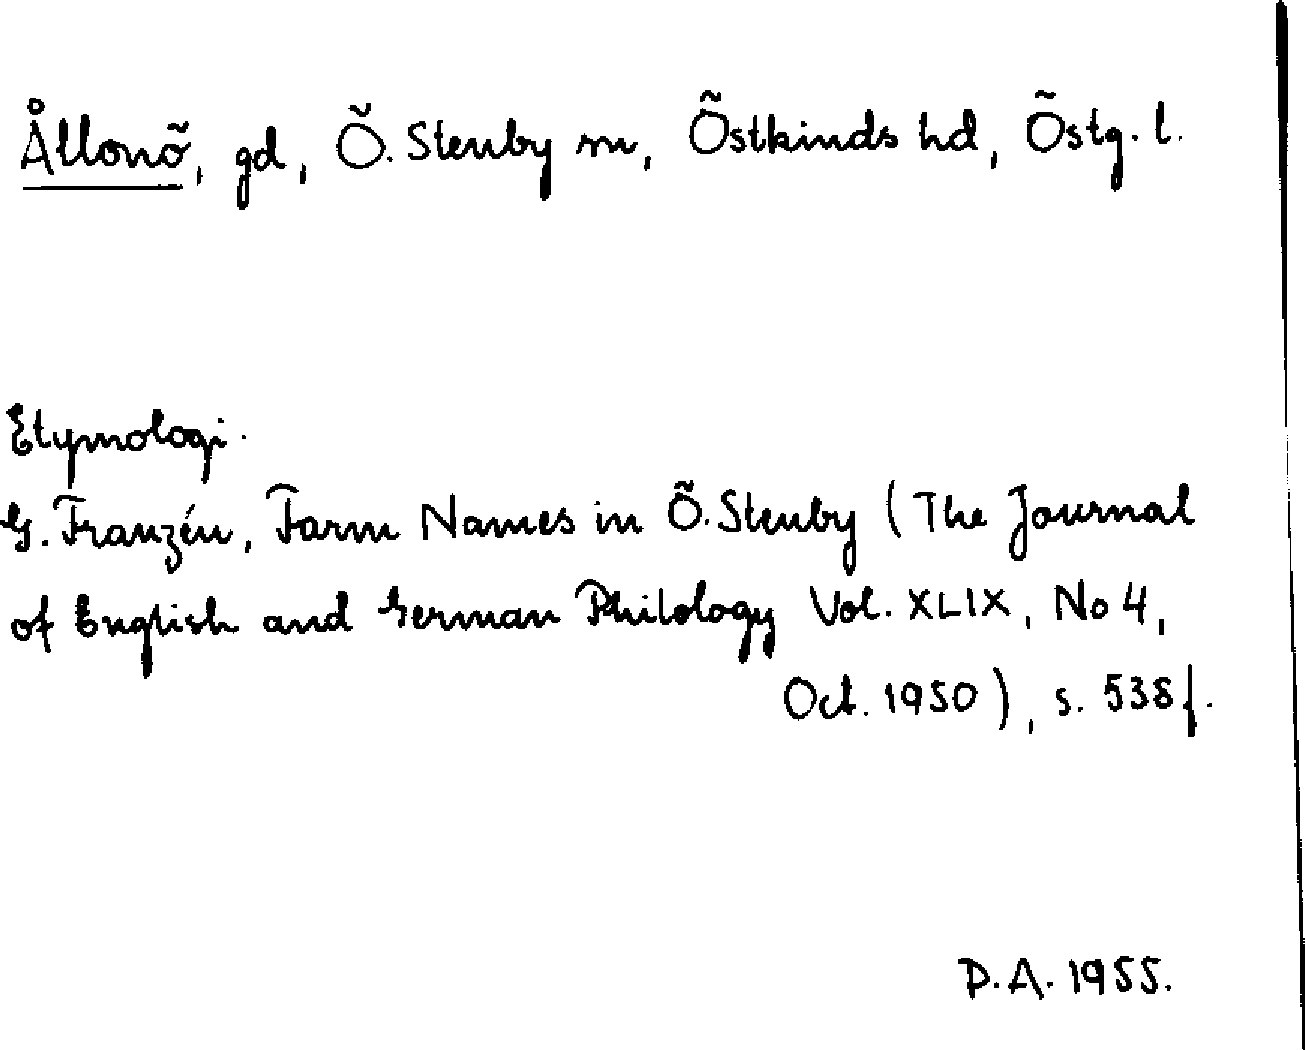 Ållonö, gd, Ö. Stenby sn, Östkinds hd, Östg. l.
Etymologi.
G. Franzén, Farm Names in Ö. Stenby (The Journal
of English and German Philology Vol. XLIX, No 4,
Oct. 1950), s. 538 f.
P.A. 1955.